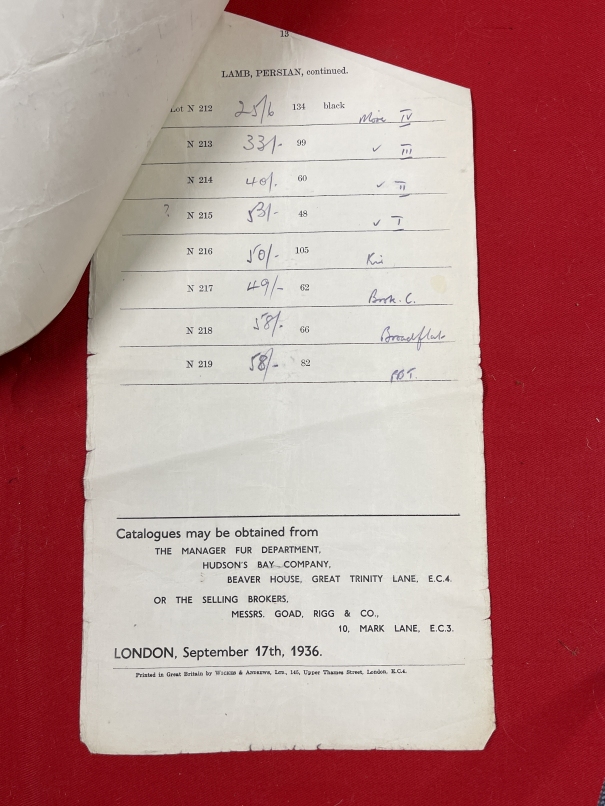 13
LAMB, PERSIAN, continued.
Lot N 212 25/6 134 black Moire IV
N 213 33/- 99 ✓ III
N 214 40/. 60 ✓ II
? N 215 53/- 48 ✓ I
N 216 50/- 105
N 217 49/- 62 Book. C.
N 218 58/. 66
N 219 58/- 82
Catalogues may be obtained from
THE MANAGER FUR DEPARTMENT,
HUDSON'S BAY COMPANY,
BEAVER HOUSE, GREAT TRINITY LANE, E.C.4.
OR THE SELLING BROKERS,
MESSRS. GOAD, RIGG & CO.,
10, MARK LANE, E.C.3.
LONDON, September 17th, 1936.
Printed in Great Britain by WICKES & ANDREWS, LTD., 145, Upper Thames Street, London, E.C.4.